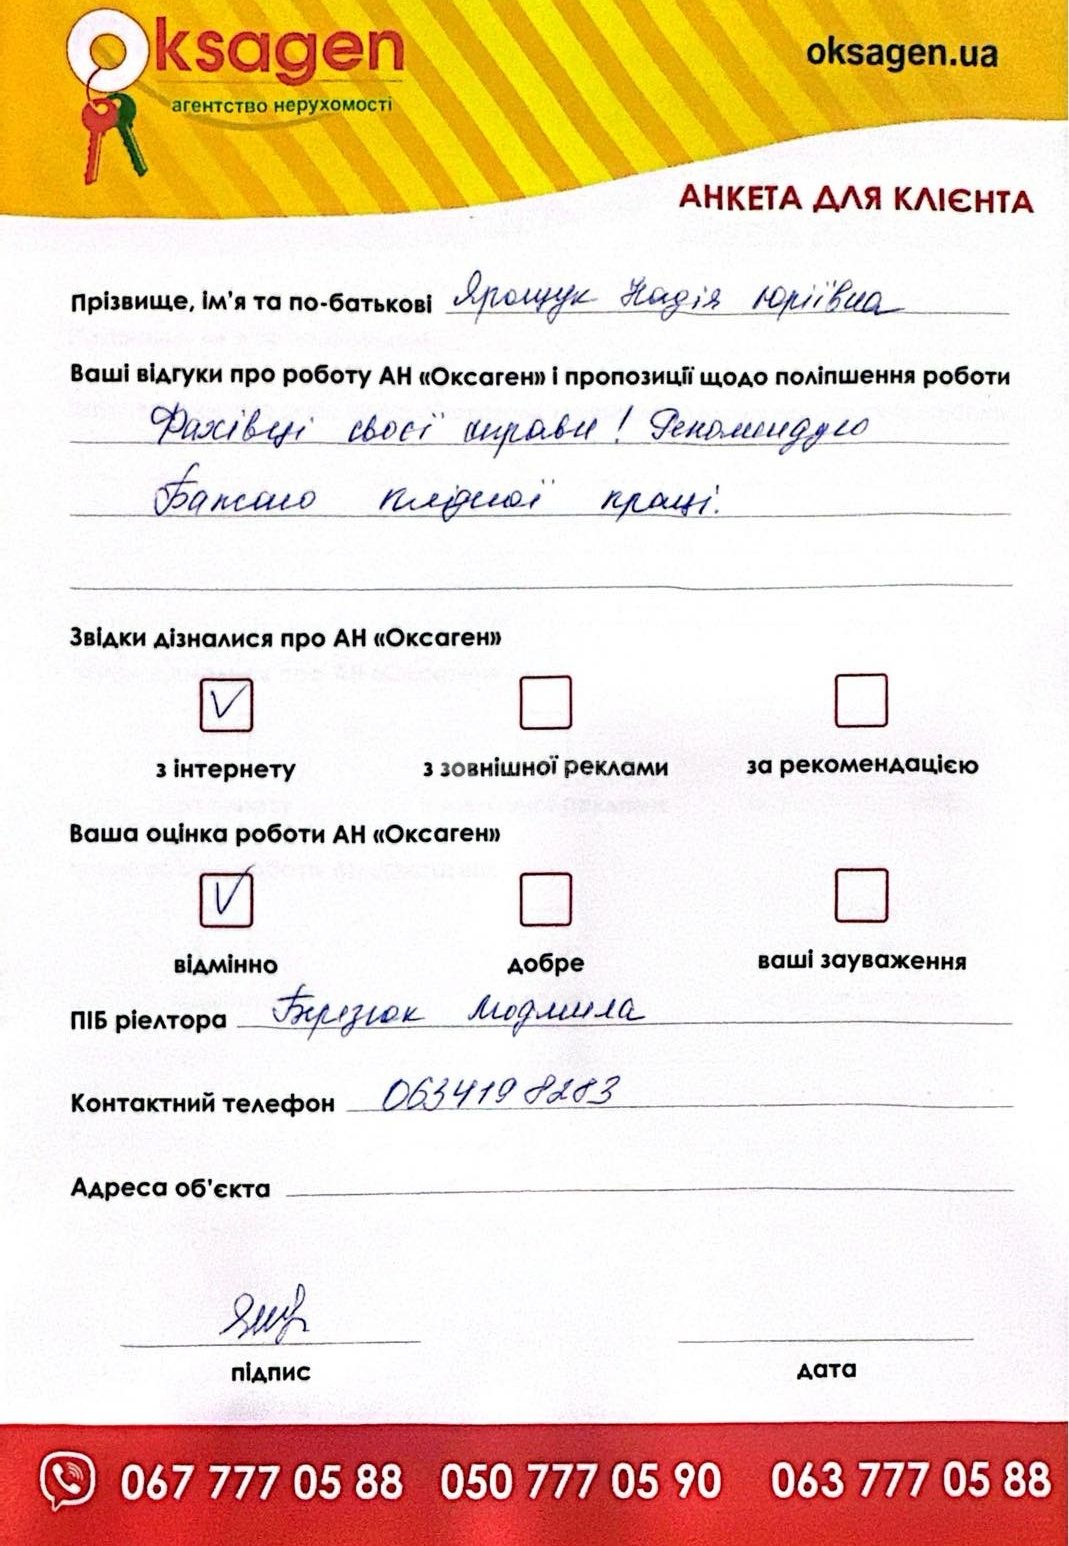 Oksagen
агентство нерухомості
oksagen.ua
АНКЕТА ДЛЯ КЛІЄНТА
Прізвище, ім'я та по-батькові Ярощук Надія Юріївна
Ваші відгуки про роботу АН «Оксаген» і пропозиції щодо поліпшення роботи
Фахівці своєї справи! Рекомендую
Бажаю плідної праці.
Звідки дізналися про АН «Оксаген»
з інтернету з зовнішної реклами за рекомендацією
Ваша оцінка роботи АН «Оксаген»
відмінно добре ваші зауваження
ПІБ ріелтора Березюк Людмила
Контактний телефон 0634198283
Адреса об'єкта
підпис дата
067 777 05 88 050 777 05 90 063 777 05 88